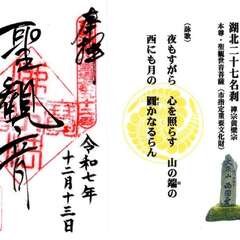 湖北二十七名刹 禅宗黄檗宗
本尊・聖観世音菩薩(市指定重要文化財)
(詠歌)
夜もすがら 心を照らす 山の端の
西にも月の 圓かなるらん
奉拝
令和七年
十二月十三日
聖観音